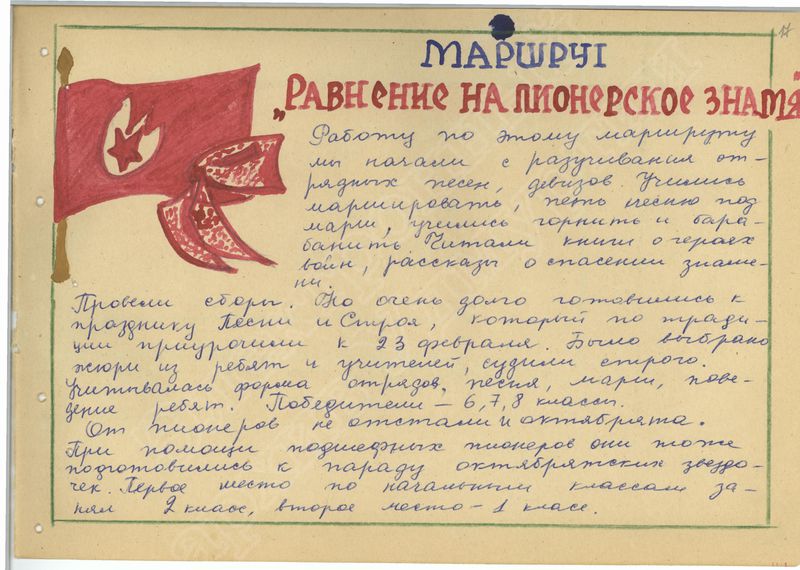 17
МАРШРУТ
„РАВНЕНИЕ НА ПИОНЕРСКОЕ ЗНАМЯ"
Работу по этому маршруту
мы начали с разучивания от-
рядных песен, девизов. Учились
маршировать, петь песню под
марш, учились горнить и бара-
банить. Читали книги о героях
войн, рассказы о спасении знаме-
ни.
Провели сборы. Но очень долго готовились к
празднику Песни и Строя, который по тради-
ции приурочили к 23 февраля. Было выбрано
жюри из ребят и учителей, судили строго.
Учитывалась форма отрядов, песня, марш, пове-
дение ребят. Победители – 6, 7, 8 классы.
От пионеров не отстали и октябрята.
При помощи подшефных пионеров они тоже
подготовились к параду октябрятских звездо-
чек. Первое место по начальным классам за-
нял 2 класс, второе место – 1 класс.